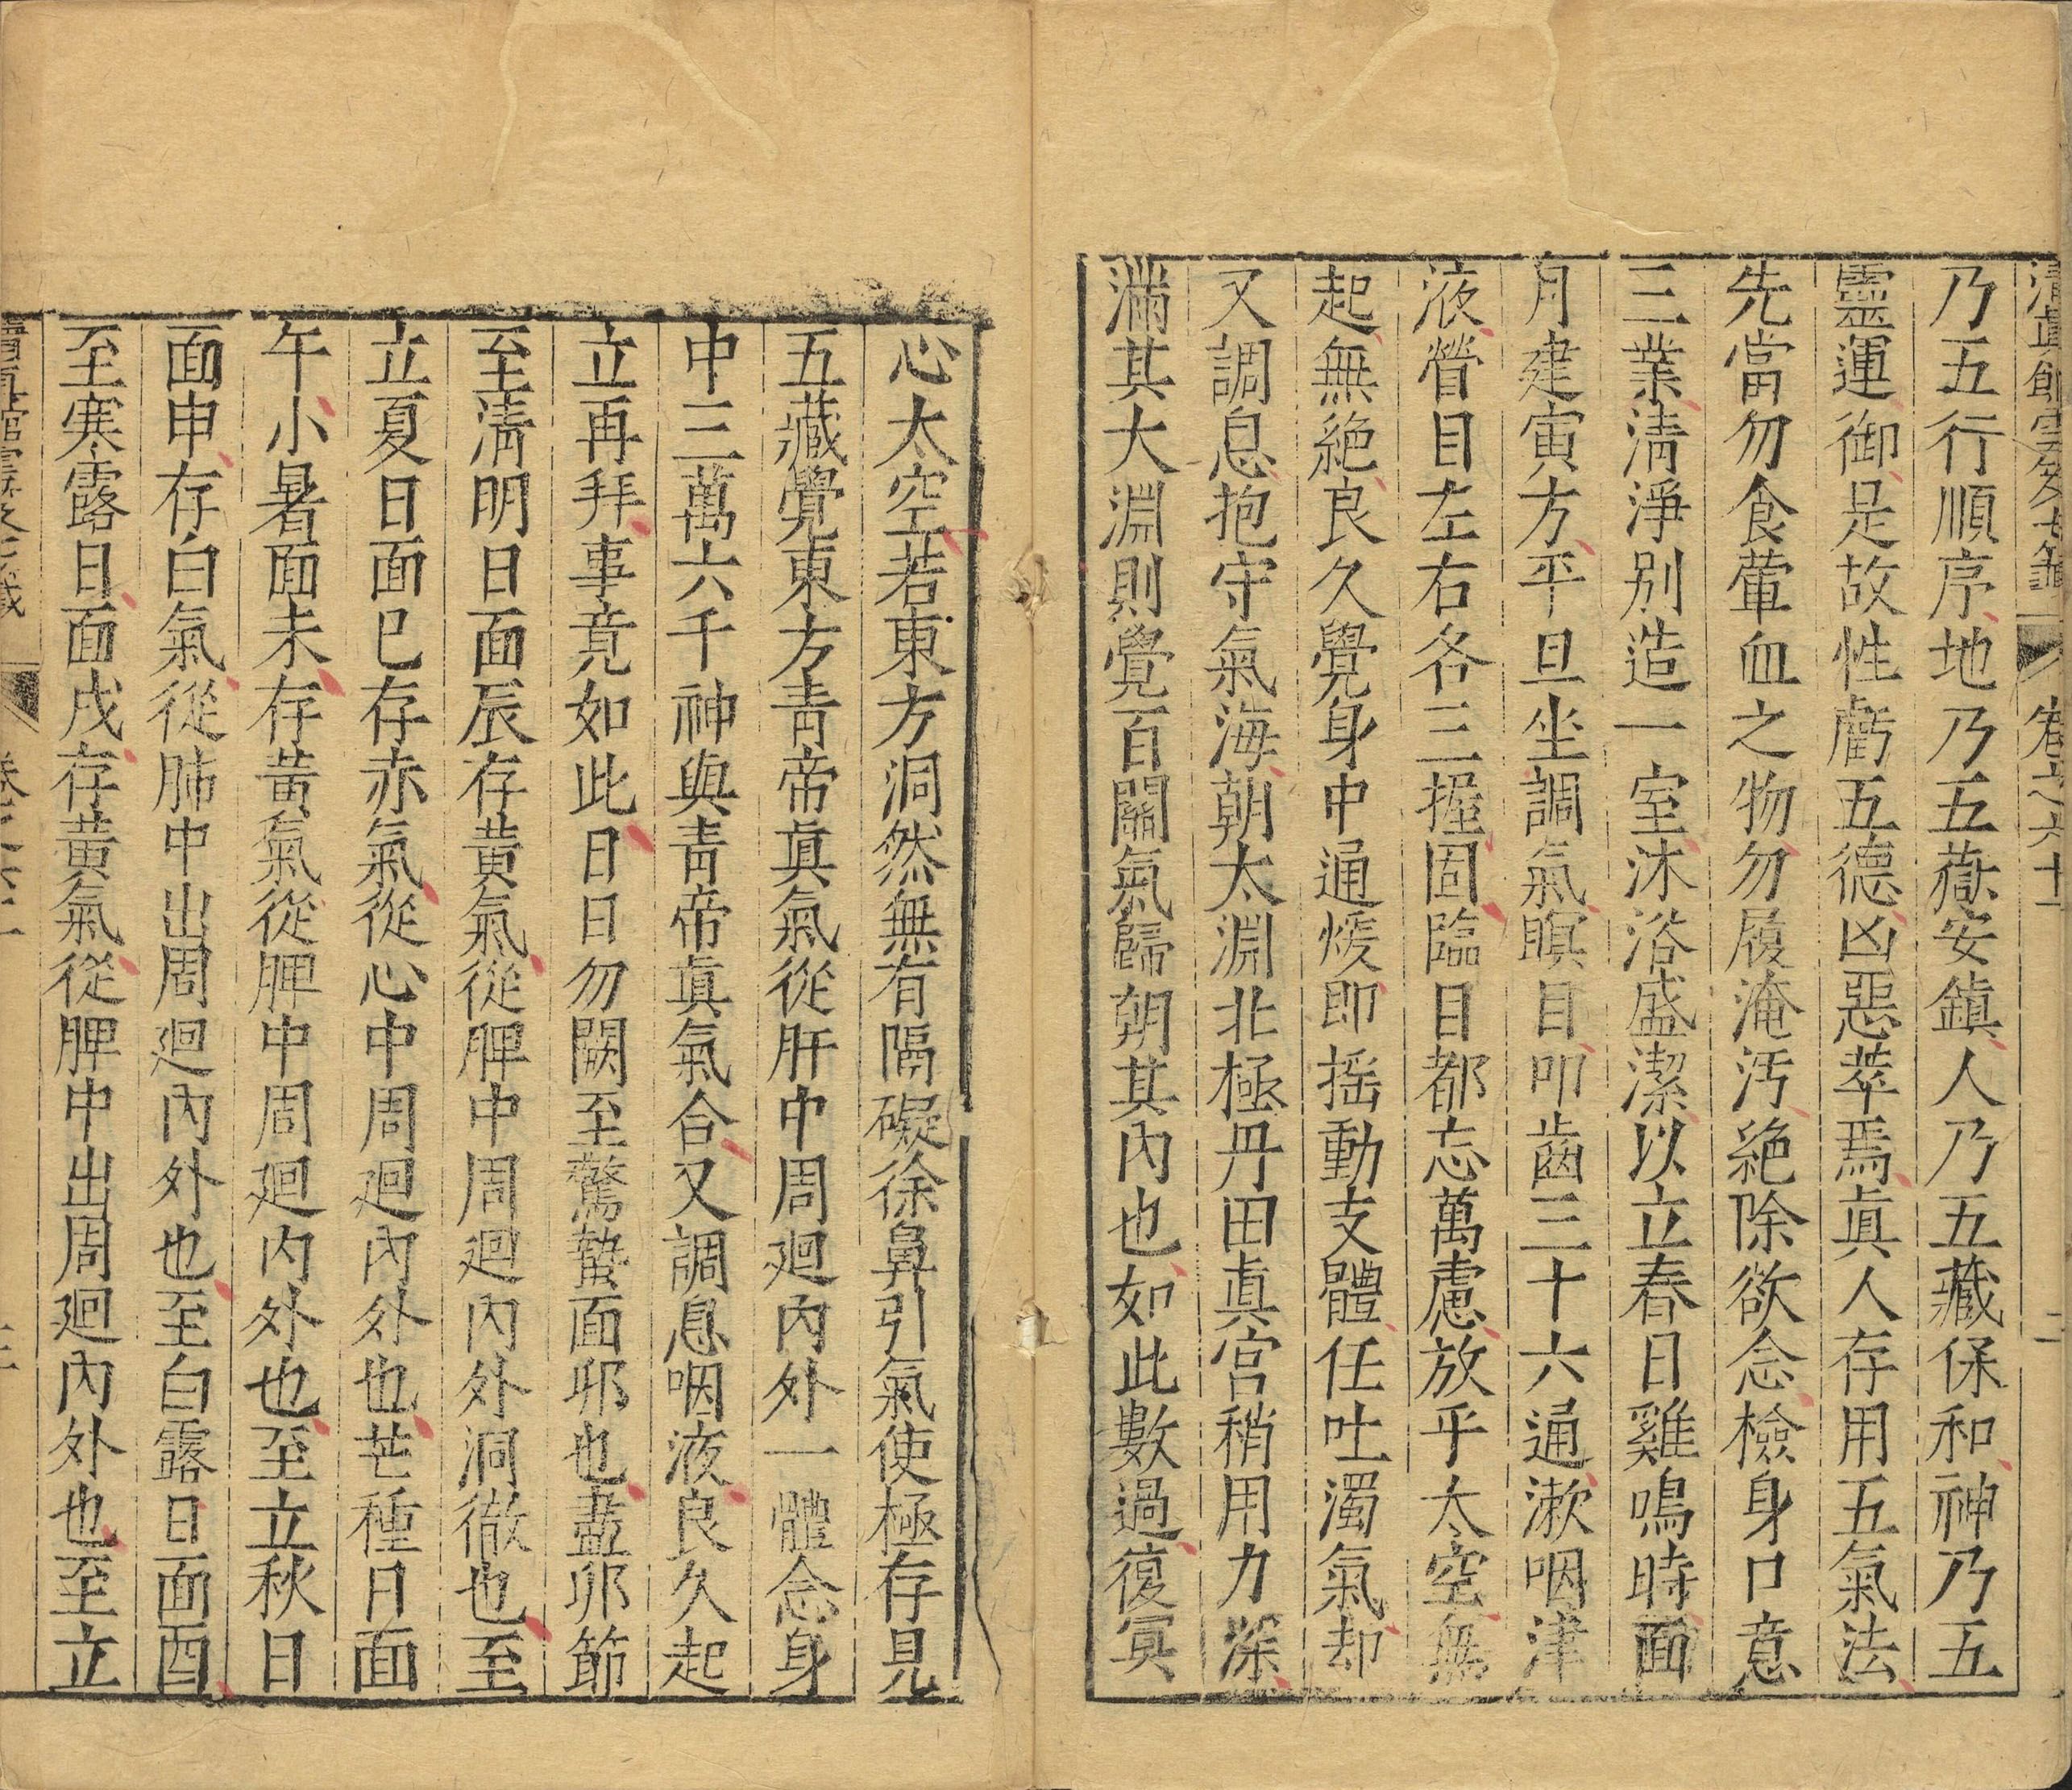 清真館雲笈七籤 卷之六十一 二
乃五行順序地乃五嶽安鎮人乃五藏保和神乃五
靈運御是故性虧五德凶惡萃焉真人存用五氣法
先當勿食葷血之物勿履淹汚絕除欲念檢身口意
三業清淨别造一室沐浴盛潔以立春日雞鳴時面
月建寅方平旦坐調氣瞑目叩齒三十六通漱咽津
液㬱目左右各三握固臨目都忘萬慮放乎太空無
起無絕良久覺身中通煖即摇動支體任吐濁氣却
又調息抱守氣海朝太淵北極丹田真宮稍用力深
滿其大淵則覺百關氣歸朔其內也如此數過復冥
心太空若東方洞然無有隔礙徐鼻引氣使極存見
五藏覺東方青帝真氣從肝中周廻內外一體念身
中三萬六千神與青帝真氣合又調息咽液良久起
立再拜事竟如此日日勿闕至驚蟄面夘也盡夘節
至清明日面辰存黃氣從脾中周廻內外洞徹也至
立夏日面巳存赤氣從心中周廻內外也芒種日面
午小暑面未存黃氣從脾中周廻內外也至立秋日
面申存白氣從肺中出周廻內外也至白露日面酉
至寒露日面戌存黃氣從脾中出周廻內外也至立